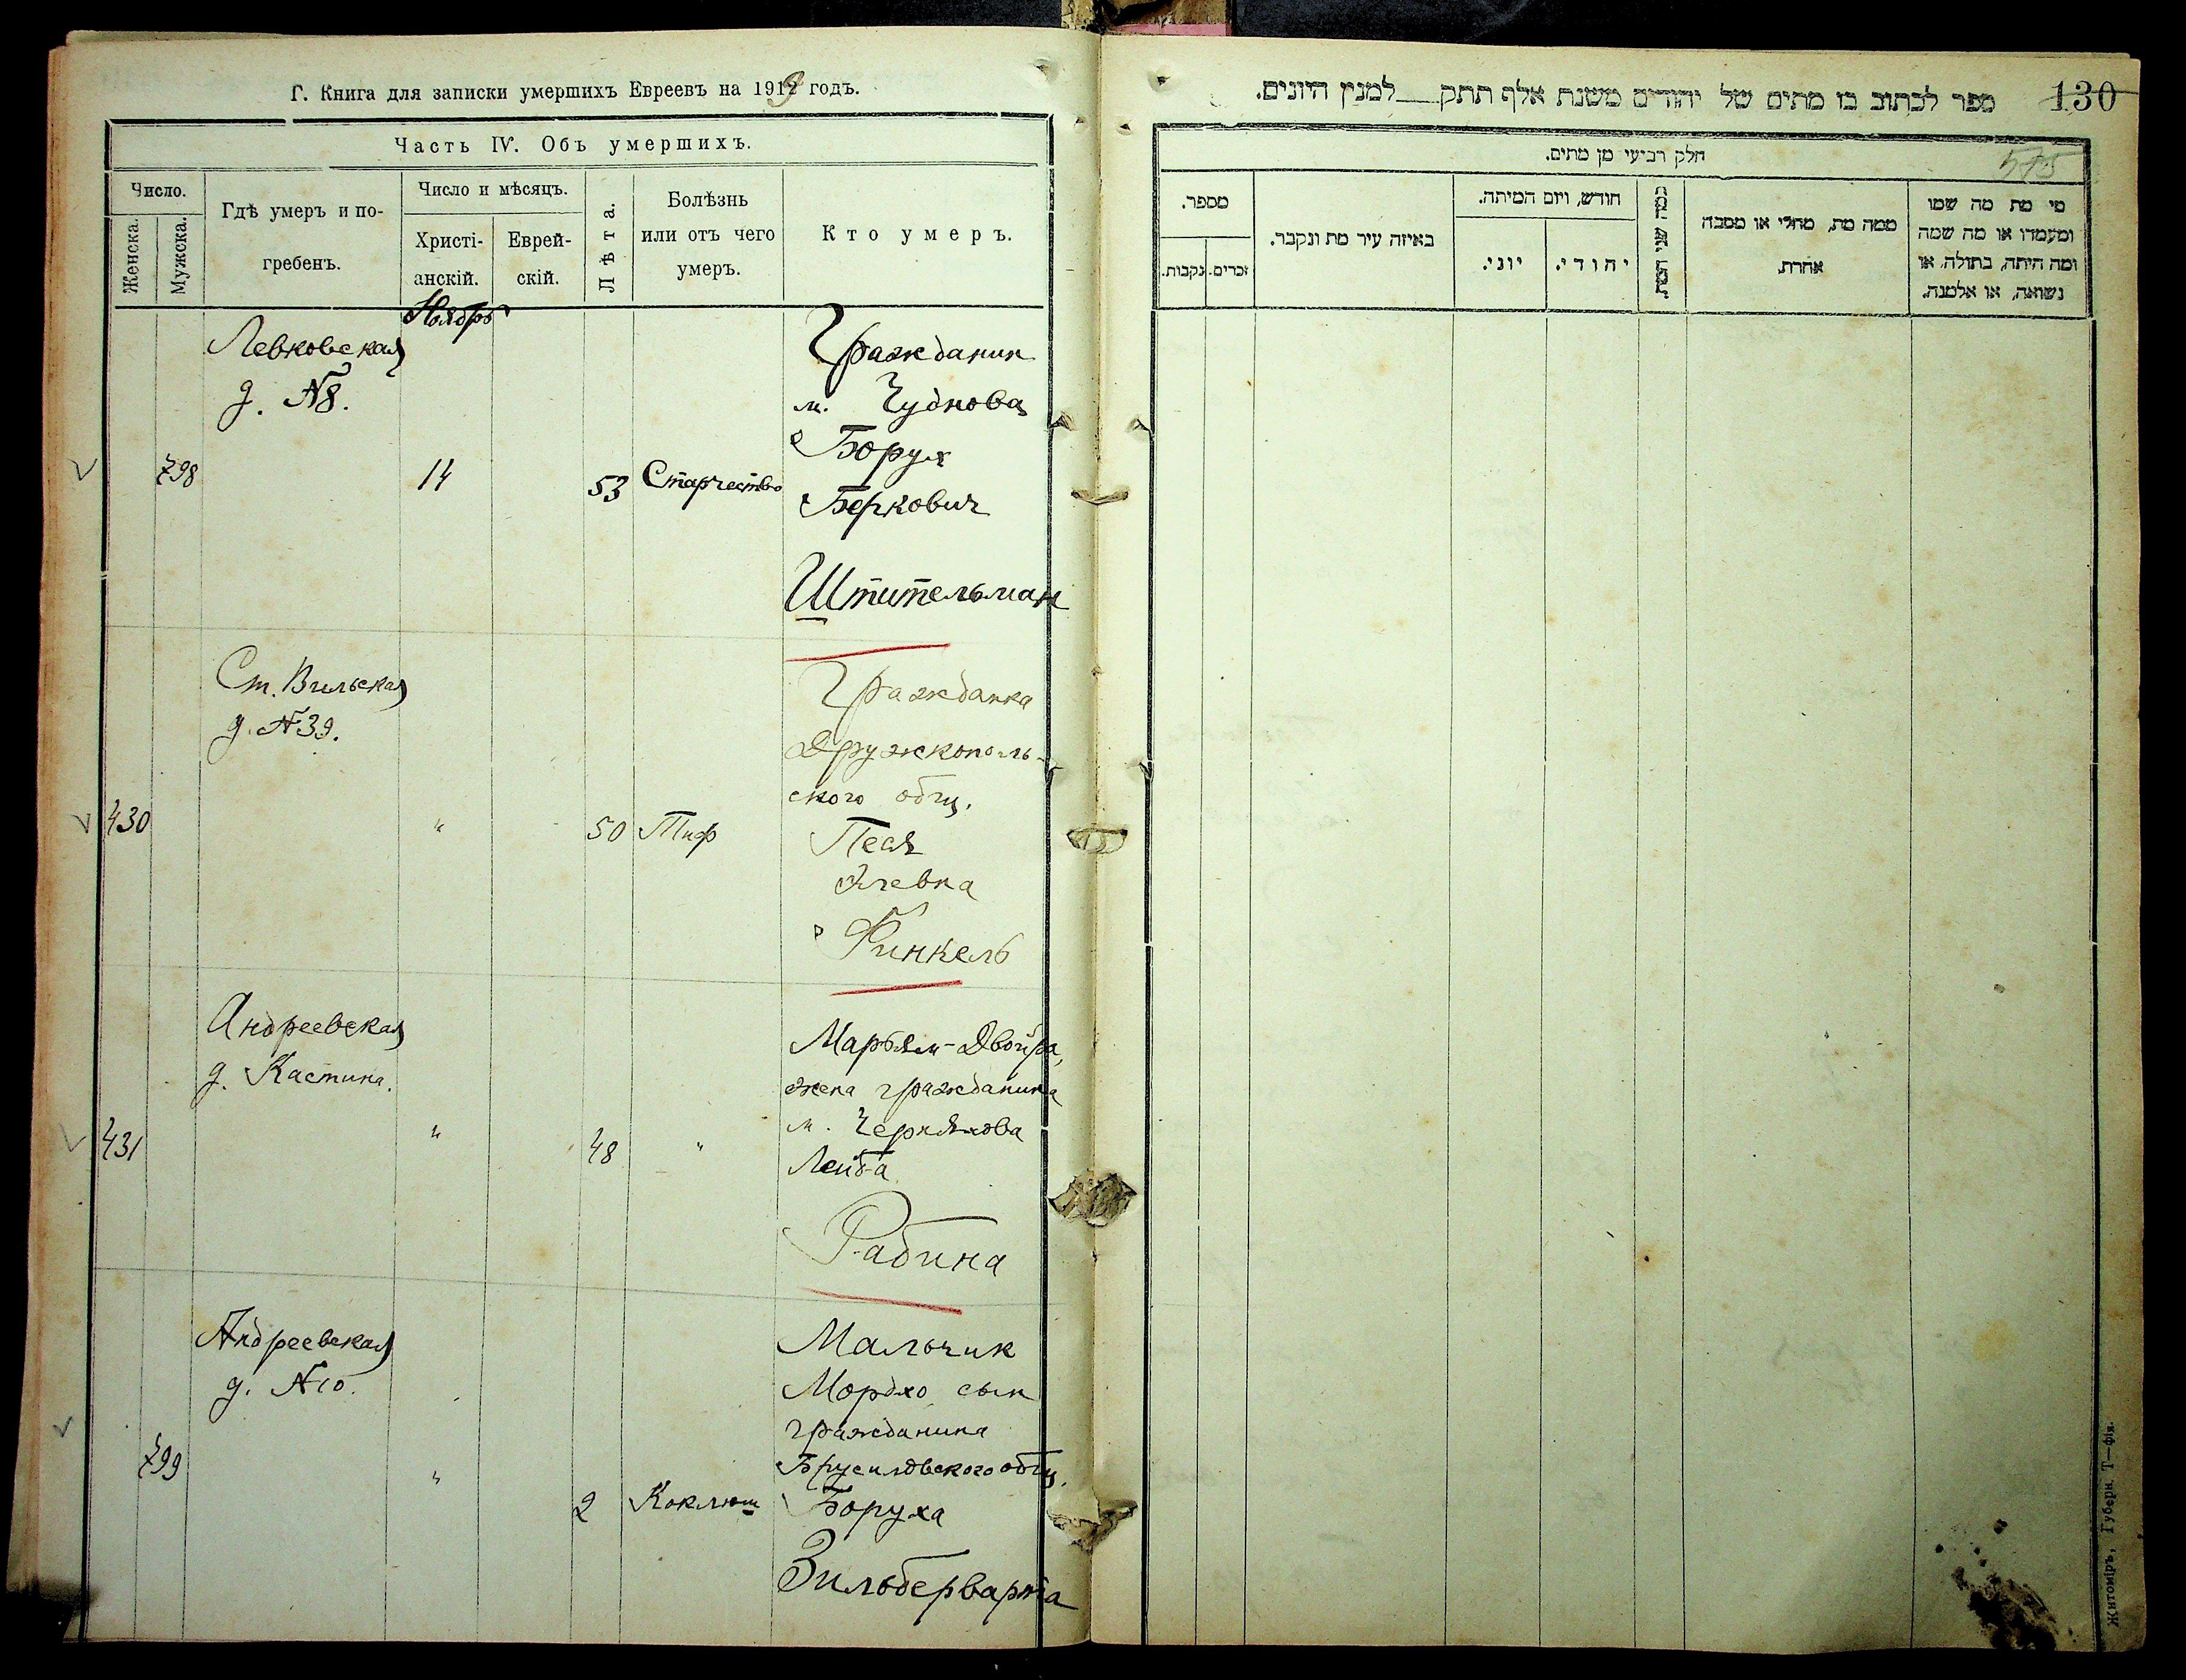 Г. Книга для записки умершихъ Евреевъ на 1919 годъ.
Часть IV. Объ умершихъ.
Число.
Женска.
Мужска.
Гдѣ умеръ и по-
гребенъ.
Число и мѣсяцъ.
Христі-
анскій.
Еврей-
скій.
Лѣта.
Болѣзнь
или отъ чего
умеръ.
Кто умеръ.
Ноябрь
Левковская
д. №8.
798
14
53
Старчество
Гражданин
м. Чуднова
Борух
Беркович
Штительман
Ст. Вильская
д. №39.
430
"
50
Тиф
Гражданка
Дружкополь-
ского общ.
Песя
Финкель
Андреевская
д. Кастина.
431
"
48
"
Марьям-Двойра,
жена гражданина
м. Черняхова
Лейба
Рабина
Андреевская
д. №10.
799
"
2
Коклюш
Мальчик
Мордко сын
гражданина
Брусиловского общ.
Боруха
Зильберварга
130
ספר לכתוב בו מתים של יהודים משנת אלף תתק למנין היונים.
חלק רביעי מן מתים.
575
מספר.
זכרים.
נקבות.
באיזה עיר מת ונקבר.
חודש, ויום המיתה.
יוני.
יהודי.
כמה שני המת.
ממה מת, מחלי או מסבה
אחרת.
מי מת מה שמו
ומעמדו או מה שמה
ומה היתה, בתולה, או
נשואה, או אלמנה.
Житоміръ, Губерн. Т—фія.